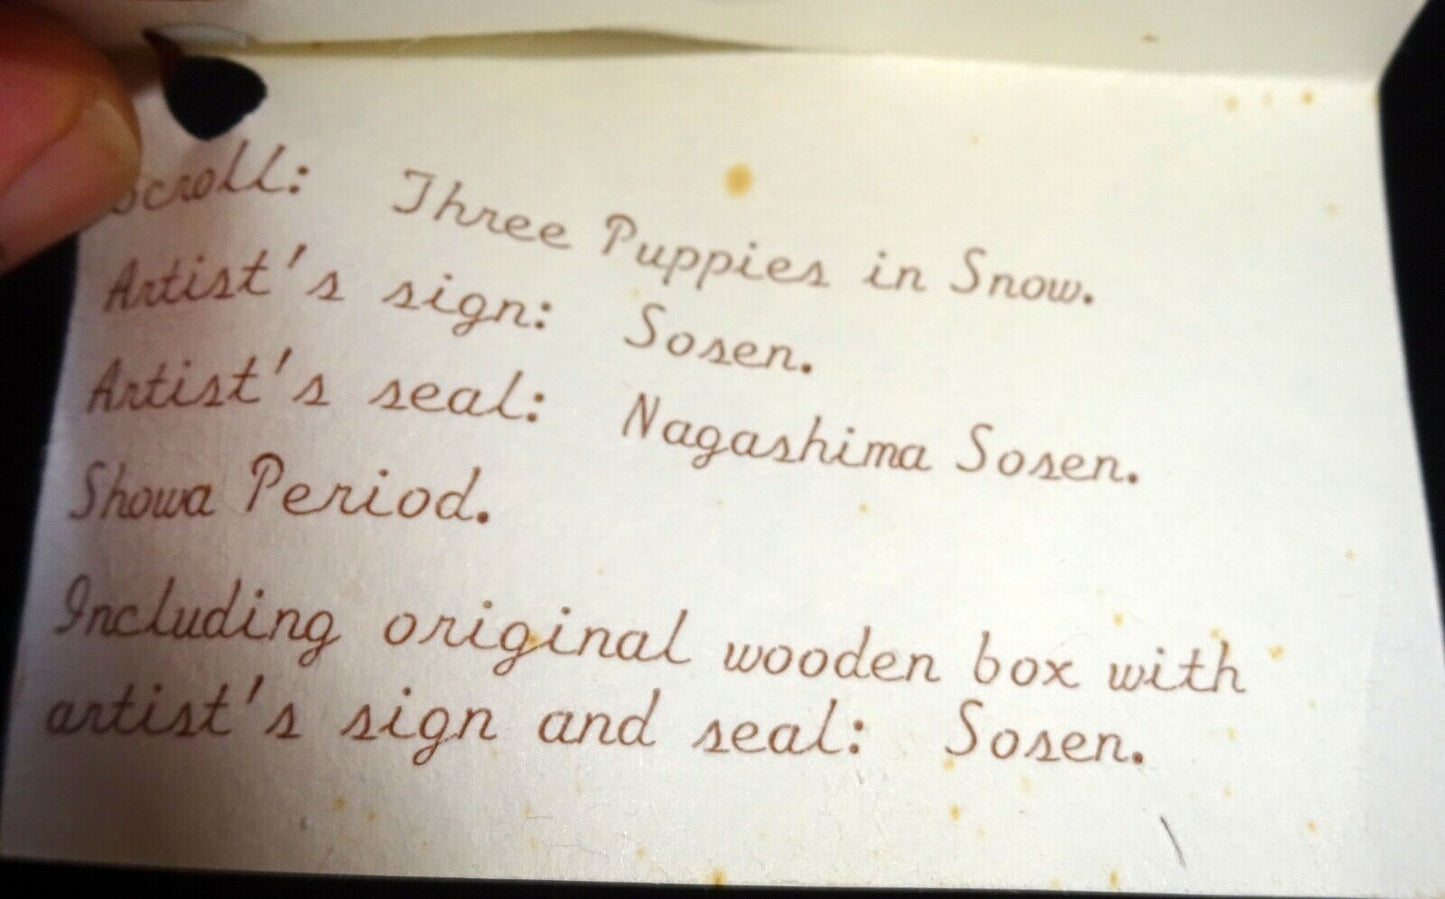 Scroll: Three Puppies in Snow.
Artist's sign: Sosen.
Artist's seal: Nagashima Sosen.
Showa Period.
Including original wooden box with
artist's sign and seal: Sosen.